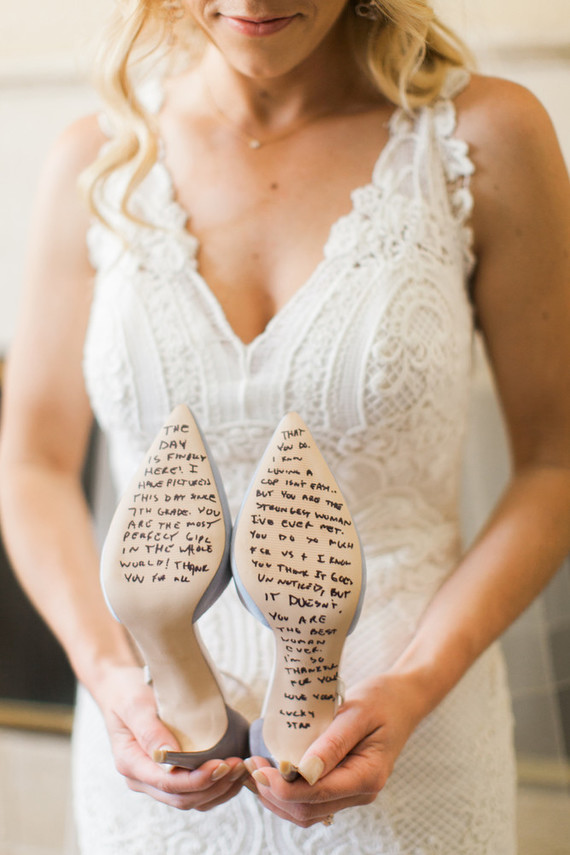 THE
DAY
IS FINALLY
HERE! I
HAVE PICTURED
THIS DAY SINCE
7TH GRADE. YOU
ARE THE MOST
PERFECT GIRL
IN THE WHOLE
WORLD! THANK
YOU FOR ALL
THAT
YOU DO.
I KNOW
LOVING A
COP ISN'T EASY..
BUT YOU ARE THE
STRONGEST WOMAN
I'VE EVER MET.
YOU DO SO MUCH
FOR US & I KNOW
YOU THINK IT GOES
UNNOTICED, BUT
IT DOESN'T.
YOU ARE
THE BEST
WOMAN
EVER.
I'M SO
THANKFUL
FOR YOU.
LOVE YOU,
LUCKY
STAR